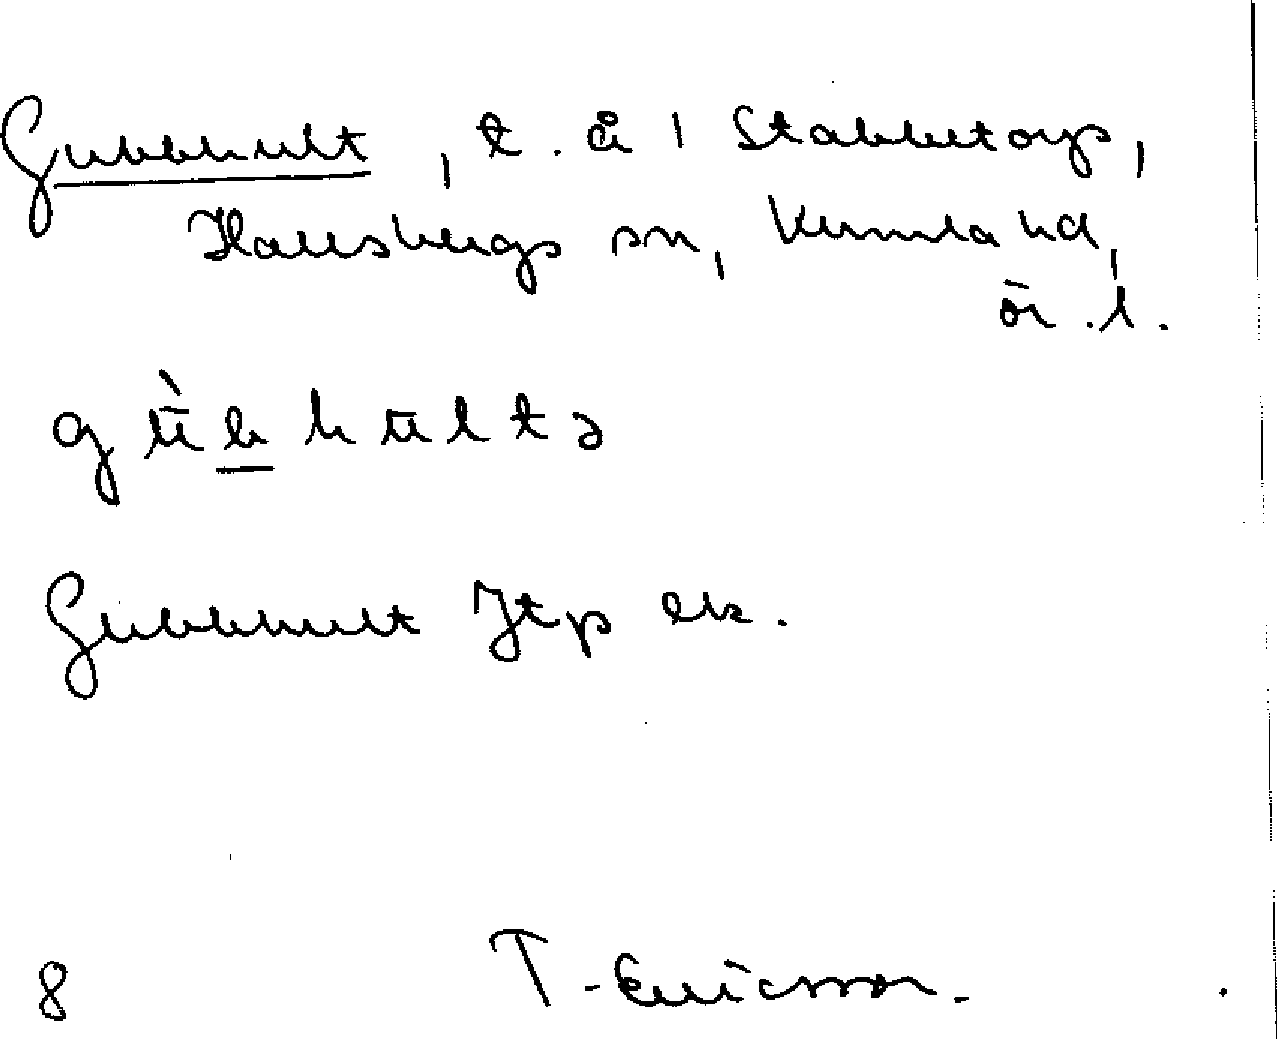 Gubbhult, t. å 1 Stabbetorp,
Hallsbergs sn, Kumla hd,
ör. l.
gù̄b̲hūltə
Gubbhult Jtp ek.
8 T. Ericsson.